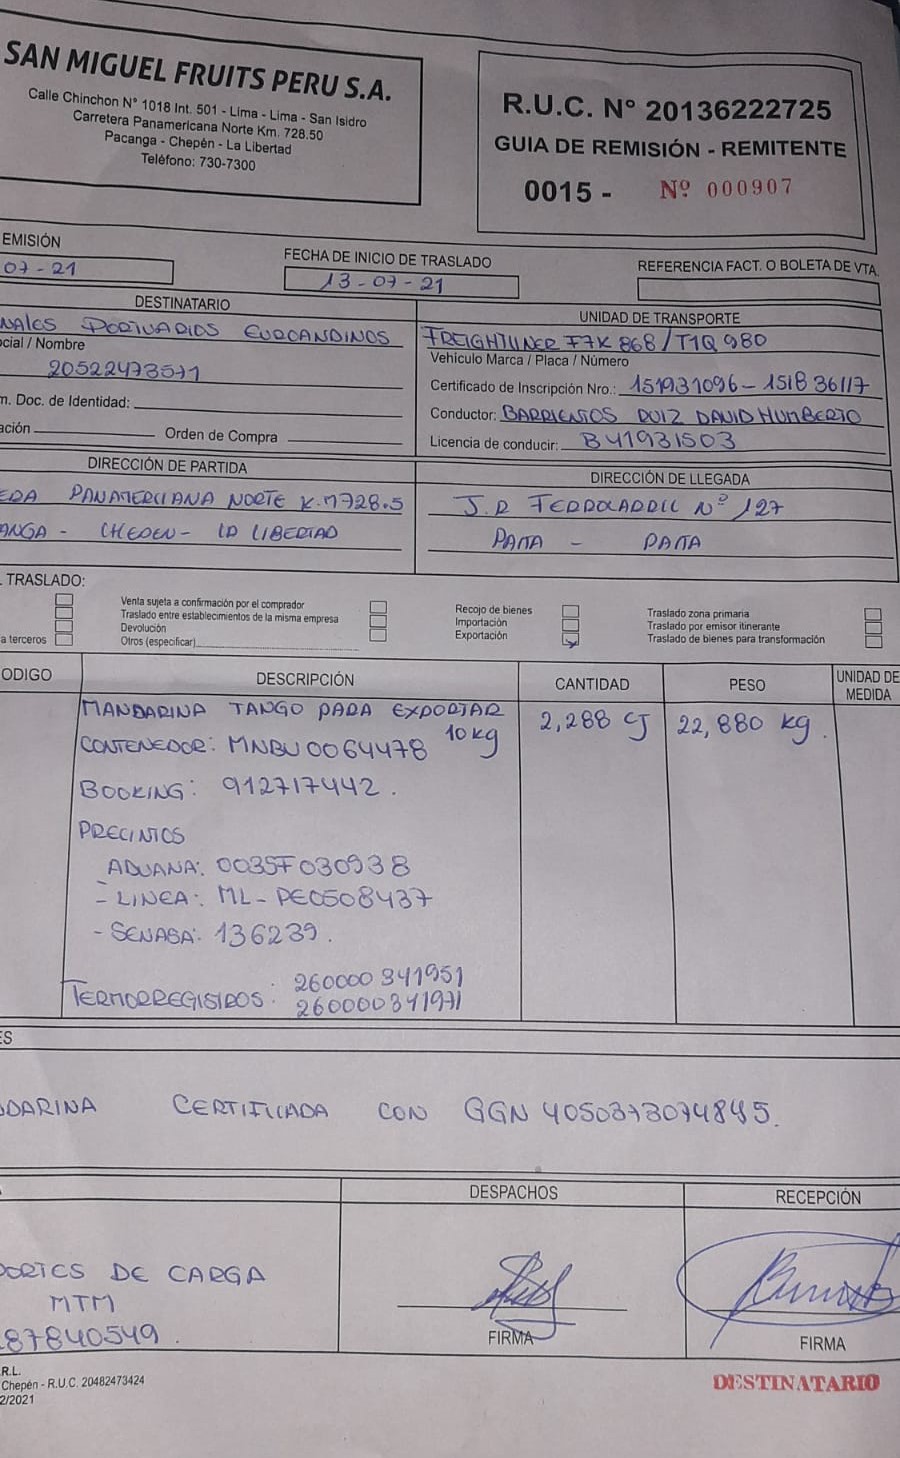 SAN MIGUEL FRUITS PERU S.A.
Calle Chinchon N° 1018 Int. 501 - Lima - Lima - San Isidro
Carretera Panamericana Norte Km. 728.50
Pacanga - Chepén - La Libertad
Teléfono: 730-7300
R.U.C. N° 20136222725
GUIA DE REMISIÓN - REMITENTE
0015 - Nº 000907
EMISIÓN
07-21
FECHA DE INICIO DE TRASLADO
13-07-21
REFERENCIA FACT. O BOLETA DE VTA.
DESTINATARIO
NALES PORTUARIOS EUROANDINOS
ocial / Nombre
20522473571
m. Doc. de Identidad:
ación Orden de Compra
UNIDAD DE TRANSPORTE
FREIGHTLINER F7K 868/T1Q 980
Vehículo Marca / Placa / Número
Certificado de Inscripción Nro.: 151931096 - 151836117
Conductor: BARRIENTOS RUIZ DAVID HUMBERTO
Licencia de conducir: B41931503
DIRECCIÓN DE PARTIDA
ERA PANAMERICANA NORTE K.M728.5
ANGA - CHEPEN - LA LIBERTAD
DIRECCIÓN DE LLEGADA
J.R FERROCARRIL Nº 127
PAITA - PAITA
TRASLADO:
a terceros
Venta sujeta a confirmación por el comprador
Traslado entre establecimientos de la misma empresa
Devolución
Otros (especificar)
Recojo de bienes
Importación
Exportación
Traslado zona primaria
Traslado por emisor itinerante
Traslado de bienes para transformación
ODIGO DESCRIPCIÓN CANTIDAD PESO UNIDAD DE MEDIDA
MANDARINA TANGO PARA EXPORTAR 2,288 CJ 22,880 kg.
10kg
CONTENEDOR: MNBU0064478
BOOKING: 912717442.
PRECINTOS
ADUANA: 0035F030938
- LINEA: ML-PE0508437
- SENASA: 136239.
TERMORREGISTROS: 260000341951
260000341971
ES
DARINA CERTIFICADA CON GGN 4050373074845.
DESPACHOS
RECEPCIÓN
PORTES DE CARGA
MTM
87840549.
FIRMA
FIRMA
R.L.
Chepén - R.U.C. 20482473424
2/2021
DESTINATARIO